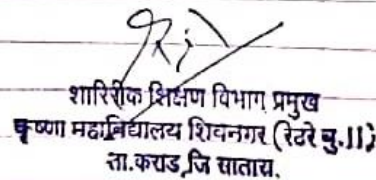 शारिरीक शिक्षण विभाग प्रमुख
कृष्णा महाविद्यालय शिवनगर (रेटरे बु.11)
ता.कराड,जि सातारा.